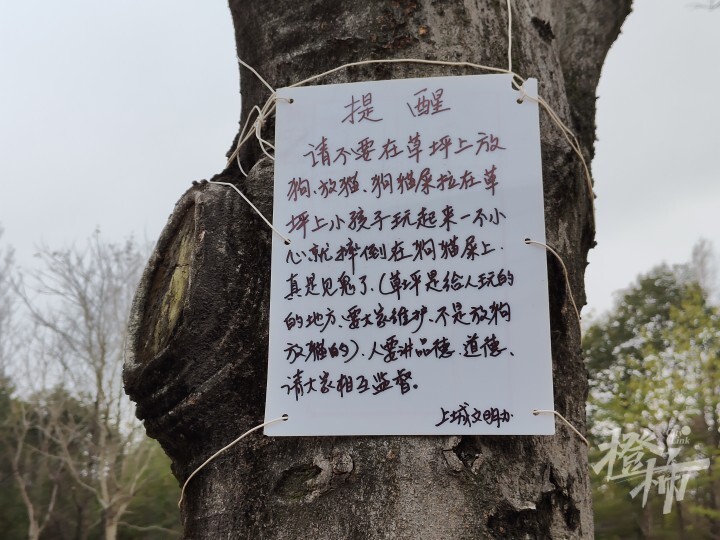 提醒
请不要在草坪上放
狗、放猫、狗猫屎拉在草
坪上小孩子玩起来一不小
心就摔倒在狗猫屎上.
真是见鬼了、(草坪是给人玩的
的地方、要大家维护、不是放狗
放猫的)、人要讲品德、道德、
请大家相互监督。
上城文明办
橙柿